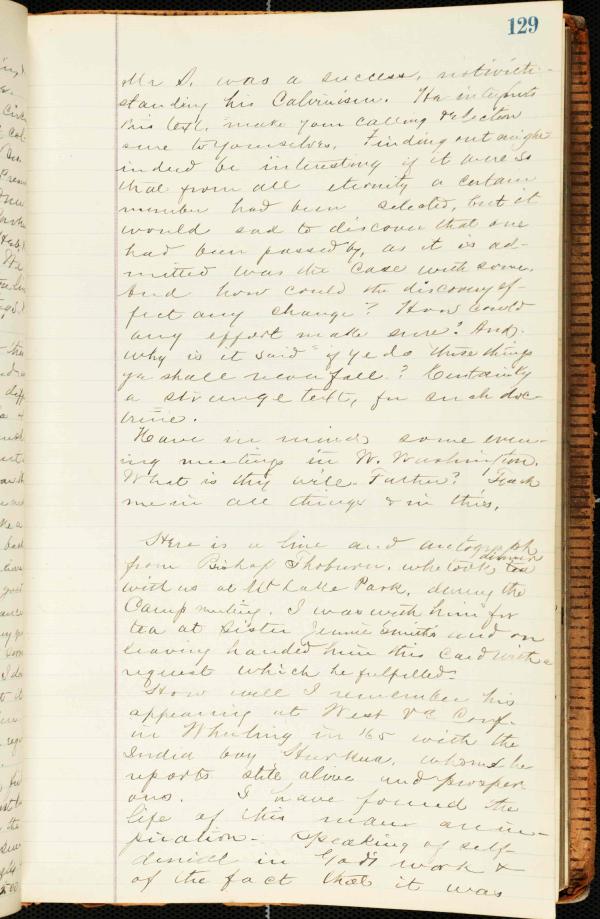 129
Mr S. was a success, notwith-
standing his Calvinism. He interprets
this text, make your calling & election
sure to yourselves. Finding out might
indeed be interesting if it were so
that from all eternity a certain
number had been selected, but it
would sad to discover that one
had been passed by, as it is ad-
mitted was the case with some.
And how could the discovery ef-
fect any change? How could
any effort make sure? And
why is it said "if ye do these things
ye shall never fall"? Certainly
a strange text, for such doc-
trine.
Have in mind some even-
ing meetings in W. Washington.
What is thy will Father? Teach
me in all things & in this.
Here is a line and autograph
from Bishop Thoburn, who took dinner
with us at Mt Lake Park, during the
Camp meeting. I was with him for
tea at Sister Jennie Smith's and on
leaving handed him this card with a
request which he fulfilled.
How well I remember his
appearing at West Va Conf.
in Wheeling in '65 with the
India boy, whom he
reports still alive and prosper-
ous. I have found the
life of this man an in-
spiration. Speaking of self
denial in God's work &
of the fact that it was